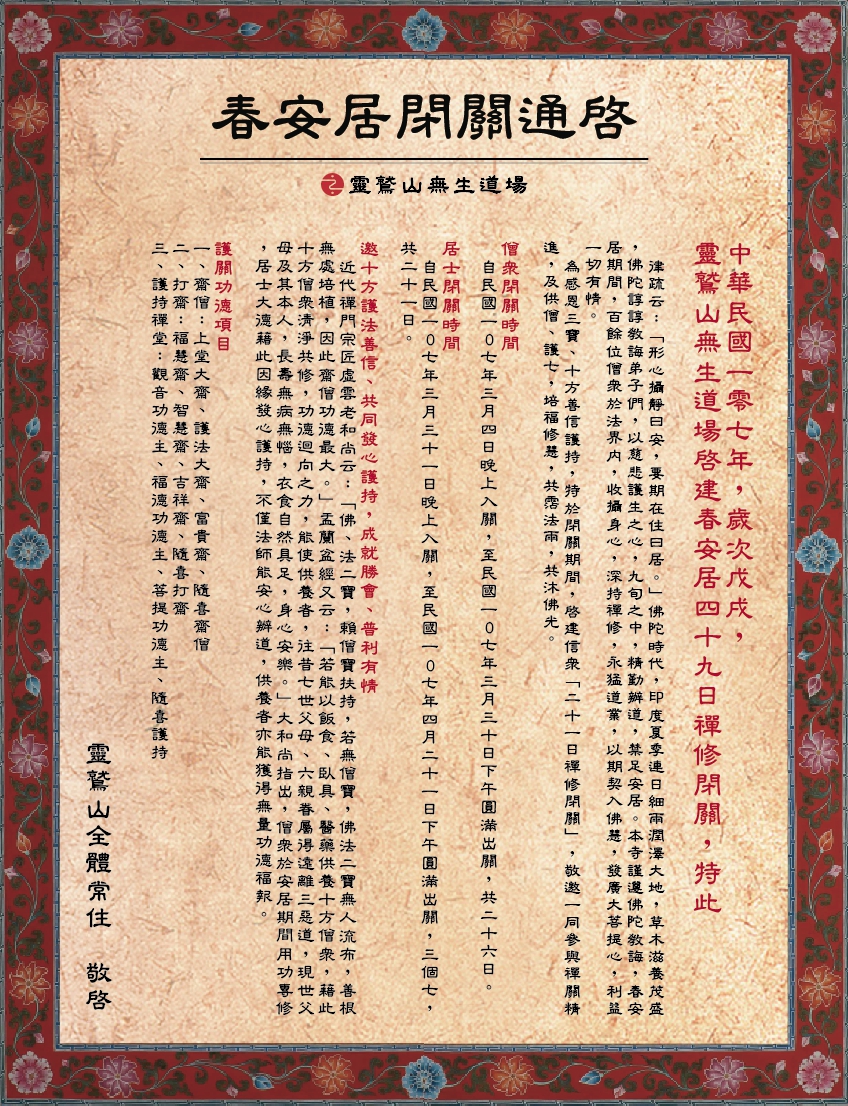 春安居閉關通啓
靈鷲山無生道場
中華民國一零七年，歲次戊戌，
靈鷲山無生道場啓建春安居四十九日禪修閉關，特此
律疏云：「形心攝靜曰安，要期在住曰居。」佛陀時代，印度夏季連日細雨潤澤大地，草木滋養茂盛
，佛陀諄諄教誨弟子們，以慈悲護生之心，九旬之中，精勤辦道，禁足安居。本寺謹遵佛陀教誨，春安
居期間，百餘位僧衆於法界內，收攝身心，深持禪修，永猛道業，以期契入佛慧，發廣大菩提心，利益
一切有情。
為感恩三寶、十方善信護持，特於閉關期間，啓建信衆「二十一日禪修閉關」，敬邀一同參與禪關精
進，及供僧、護七，培福修慧，共霑法雨，共沐佛光。
僧衆閉關時間
自民國一０七年三月四日晚上入關，至民國一０七年三月三十日下午圓滿出關，共二十六日。
居士閉關時間
自民國一０七年三月三十一日晚上入關，至民國一０七年四月二十一日下午圓滿出關，三個七，
共二十一日。
邀十方護法善信、共同發心護持，成就勝會、普利有情
近代禪門宗匠虛雲老和尚云：「佛、法二寶，賴僧寶扶持，若無僧寶，佛法二寶無人流布，善根
無處培植，因此齋僧功德最大。」盂蘭盆經又云：「若能以飯食、臥具、醫藥供養十方僧衆，藉此
十方僧衆清淨共修，功德迴向之力，能使供養者，注昔七世父母、六親眷屬得遠離三惡道，現世父
母及其本人，長壽無病無惱，衣食自然具足，身心安樂。」大和尚指出，僧衆於安居期間用功專修
，居士大德藉此因緣發心護持，不僅法師能安心辦道，供養者亦能獲得無量功德福報。
護關功德項目
一、齋僧：上堂大齋、護法大齋、富貴齋、隨喜齋僧
二、打齋：福慧齋、智慧齋、吉祥齋、隨喜打齋
三、護持禪堂：觀音功德主、福德功德主、菩提功德主、隨喜護持
靈鷲山全體常住　敬啓